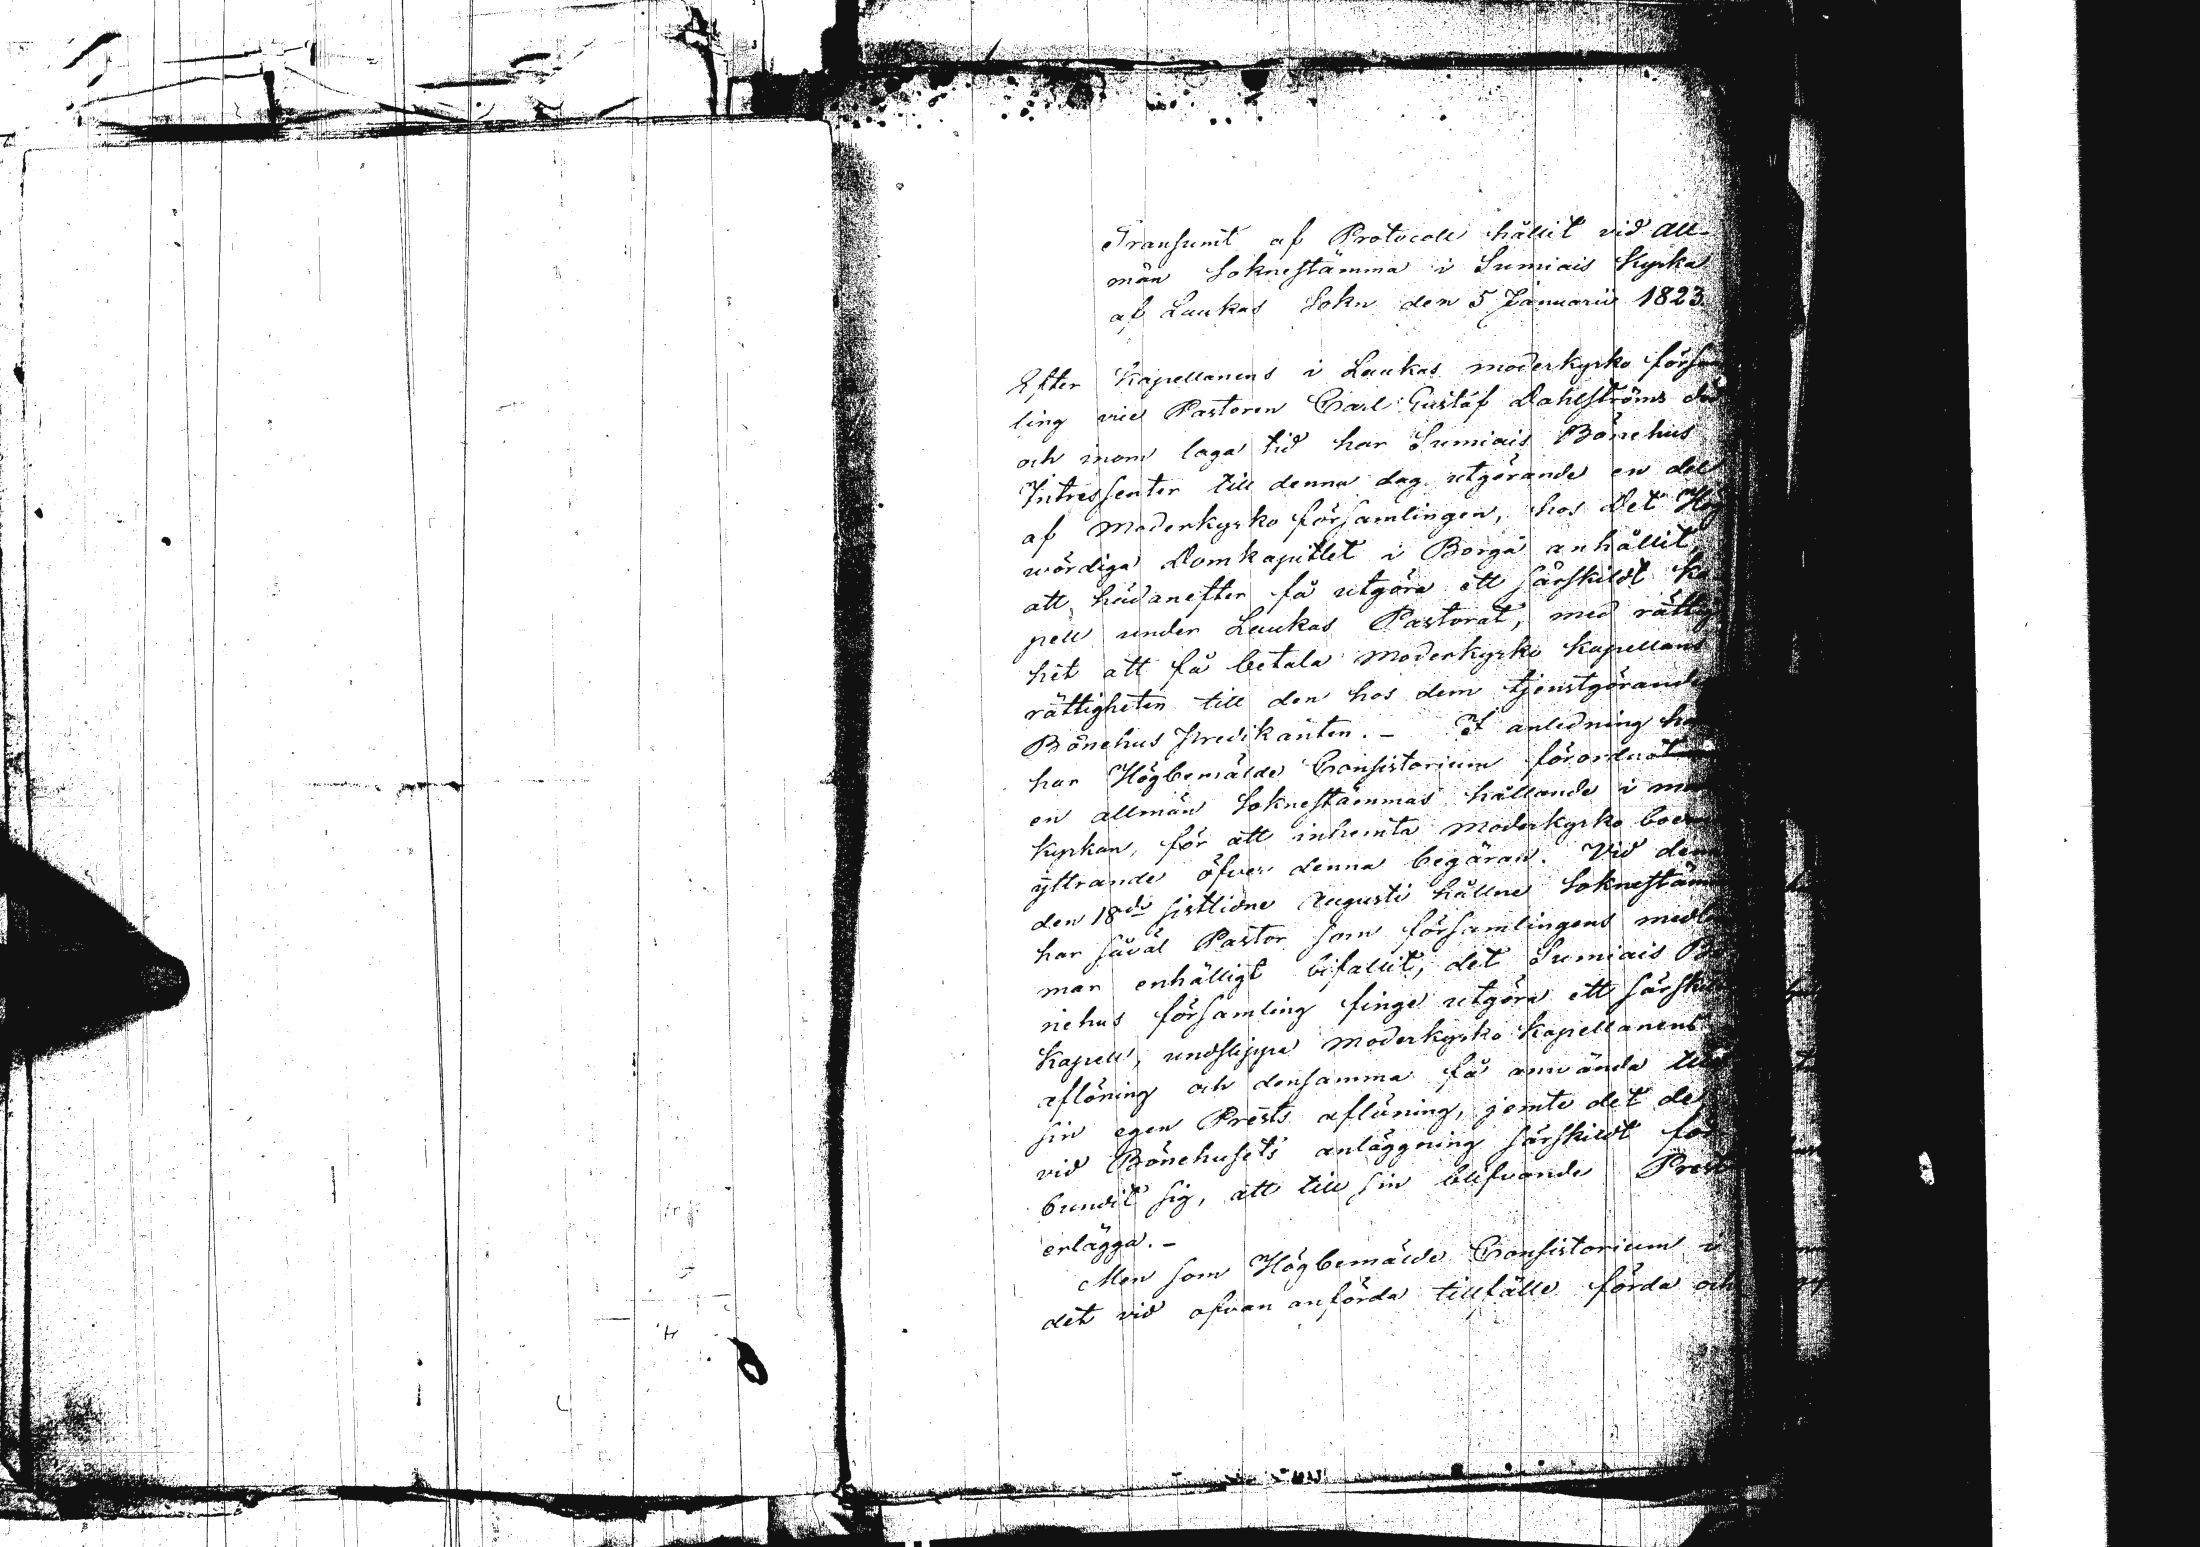 Transumt af Protocoll hållit vid All-
män Soknestämma i Sumiais Kyrka
af Laukas Sokn den 5 Januarii 1823.
Efter Kapellanens i Laukas moderkyrko försam
ling vice Pastoren Carl Gustaf Dahlströms död
och inom laga tid har Sumiais Bönehus
Intressenter till denna dag utgörande en del
af Moderkyrko församlingen, hos Det Hög
wördiga Domkapitlet i Borgå anhållit,
att hädanefter få utgöra ett särskildt Ka
pell under Laukas Pastorat, med rättig
het att få betala Moderkyrko Kapellans
rättigheten till den hos dem tjenstgörande
Bönehus Predikanten. - I anledning
har Högbemälde Consistorium förordnat
en allmän Soknestämmas hållande i
Kyrkan, för att inhemta Moderkyrko
yttrande öfver denna begäran. Vid
den 18de sistlidne Augusti hållne Soknestäm
har såväl Pastor som församlingens medle
mar enhälligt bifallit, det Sumiais Bö
nehus församling finge utgöra ett särskildt
Kapell, undslippa Moderkyrko Kapellanens
aflöning och densamma få använda till
sin egen Prests aflöning, jemte det de
vid Bönehusets anläggning särskildt för
bundit sig, att till sin blifvande Prest
erlägga. -
Men som Högbemälde Consistorium i
det vid ofvan anförda tillfälle förda och